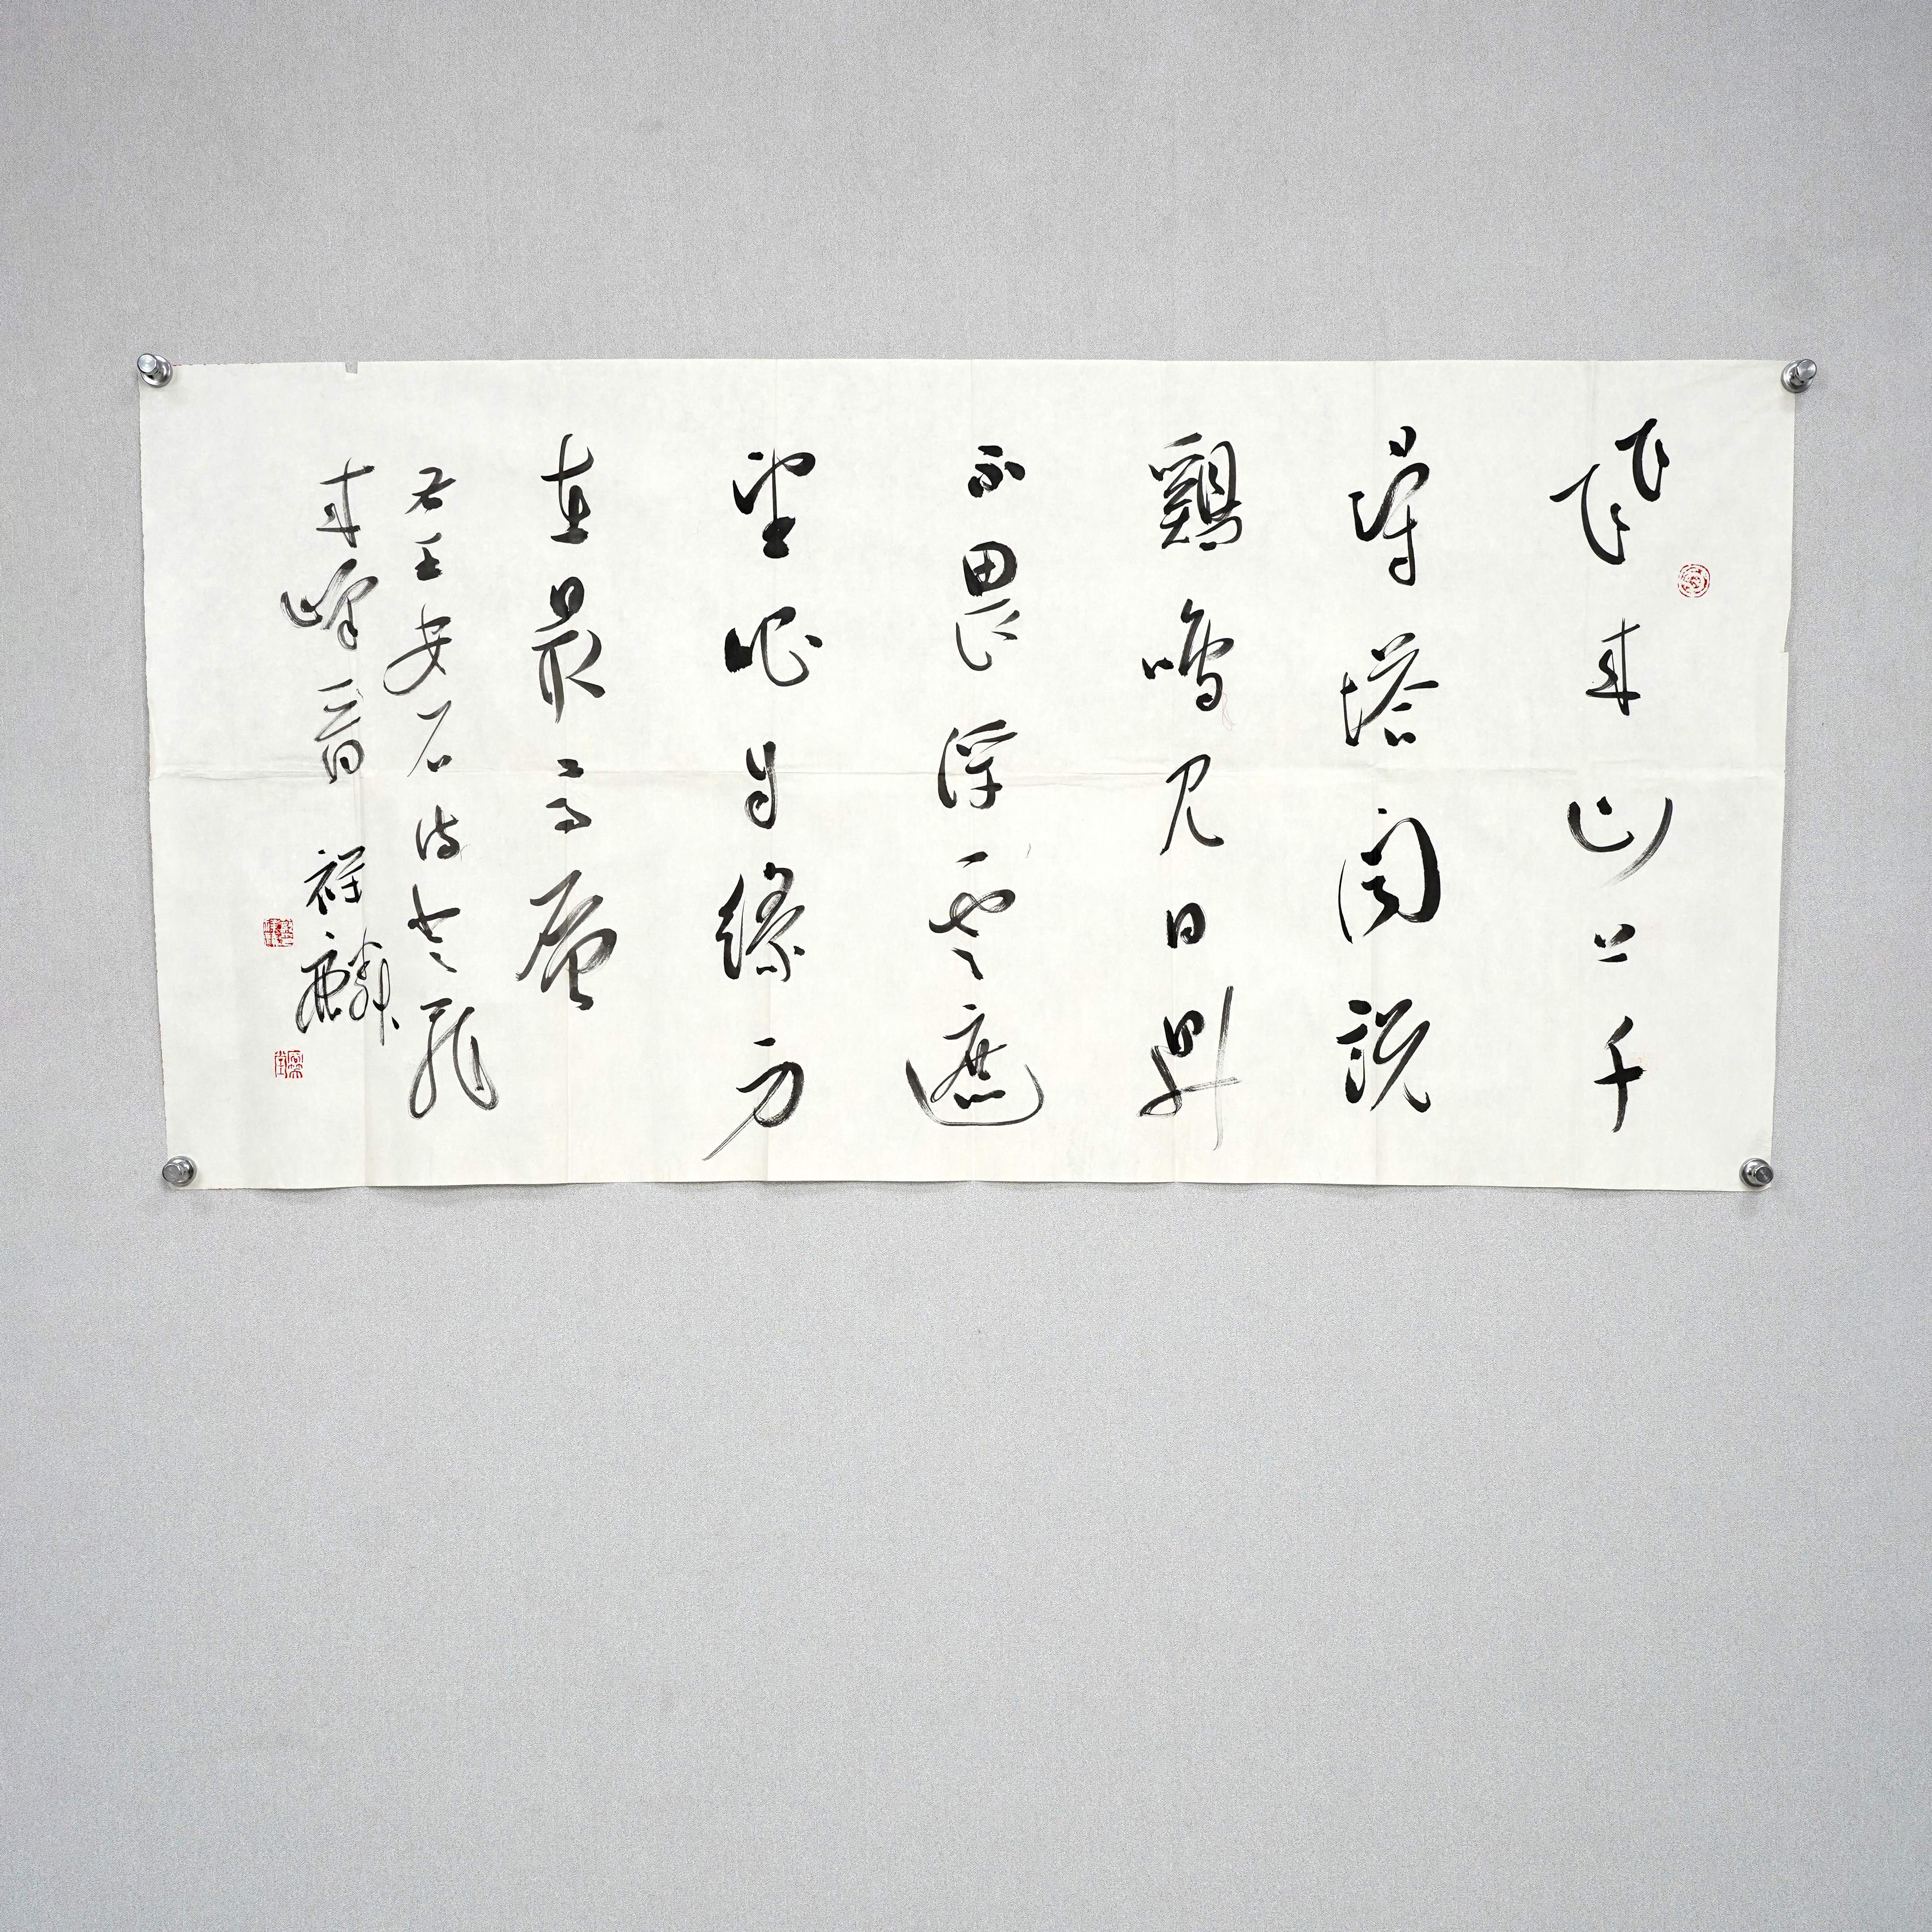 飛來山上千
尋塔聞說
鷄鳴見日昇
不畏浮雲遮
望眼自緣身
在最高層
右王安石詩登飛
來峰一首 祥麟